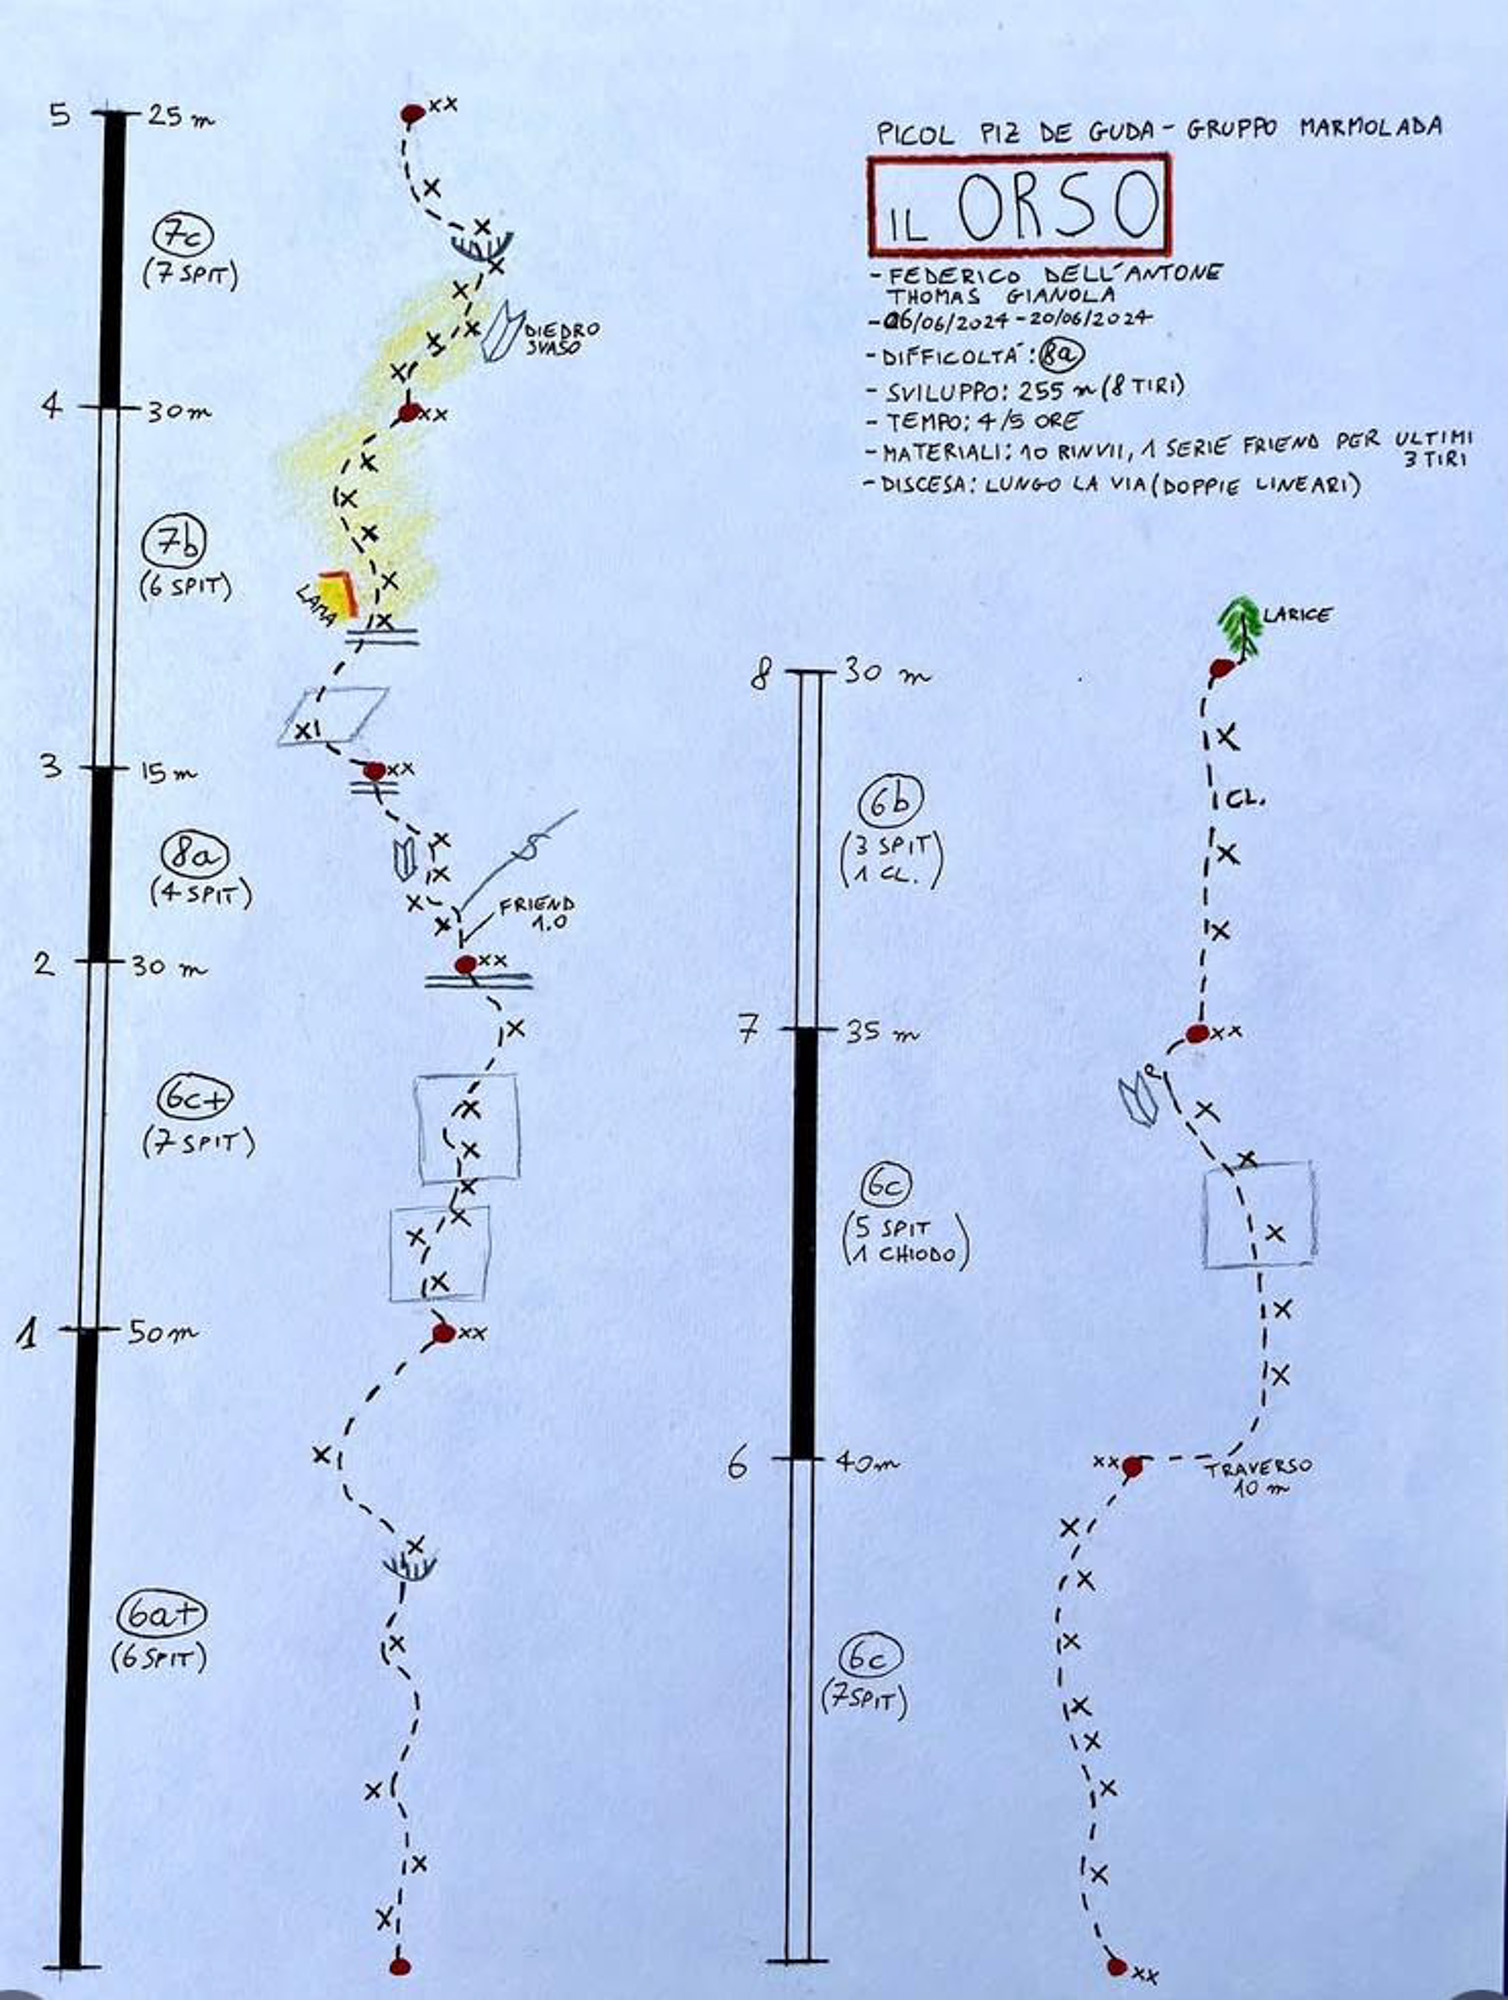 PICOL PIZ DE GUDA - GRUPPO MARMOLADA
IL ORSO
- FEDERICO DELL'ANTONE
THOMAS GIANOLA
- 06/06/2024 - 20/06/2024
- DIFFICOLTÀ: 8a
- SVILUPPO: 255 m (8 TIRI)
- TEMPO: 4/5 ORE
- MATERIALI: 10 RINVII, 1 SERIE FRIEND PER ULTIMI
3 TIRI
- DISCESA: LUNGO LA VIA (DOPPIE LINEARI)
5 25 m
xx
7c
(7 SPIT)
DIEDRO
SVASO
4 30m
xx
7b
(6 SPIT)
LAMA
3 15 m
xx
8a
(4 SPIT)
FRIEND
1.0
2 30 m
xx
6c+
(7 SPIT)
1 50m
xx
6a+
(6 SPIT)
LARICE
8 30 m
6b
(3 SPIT
1 CL.)
CL.
7 35 m
xx
6c
(5 SPIT
1 CHIODO)
6 40m
xx
TRAVERSO
10 m
6c
(7SPIT)
xx